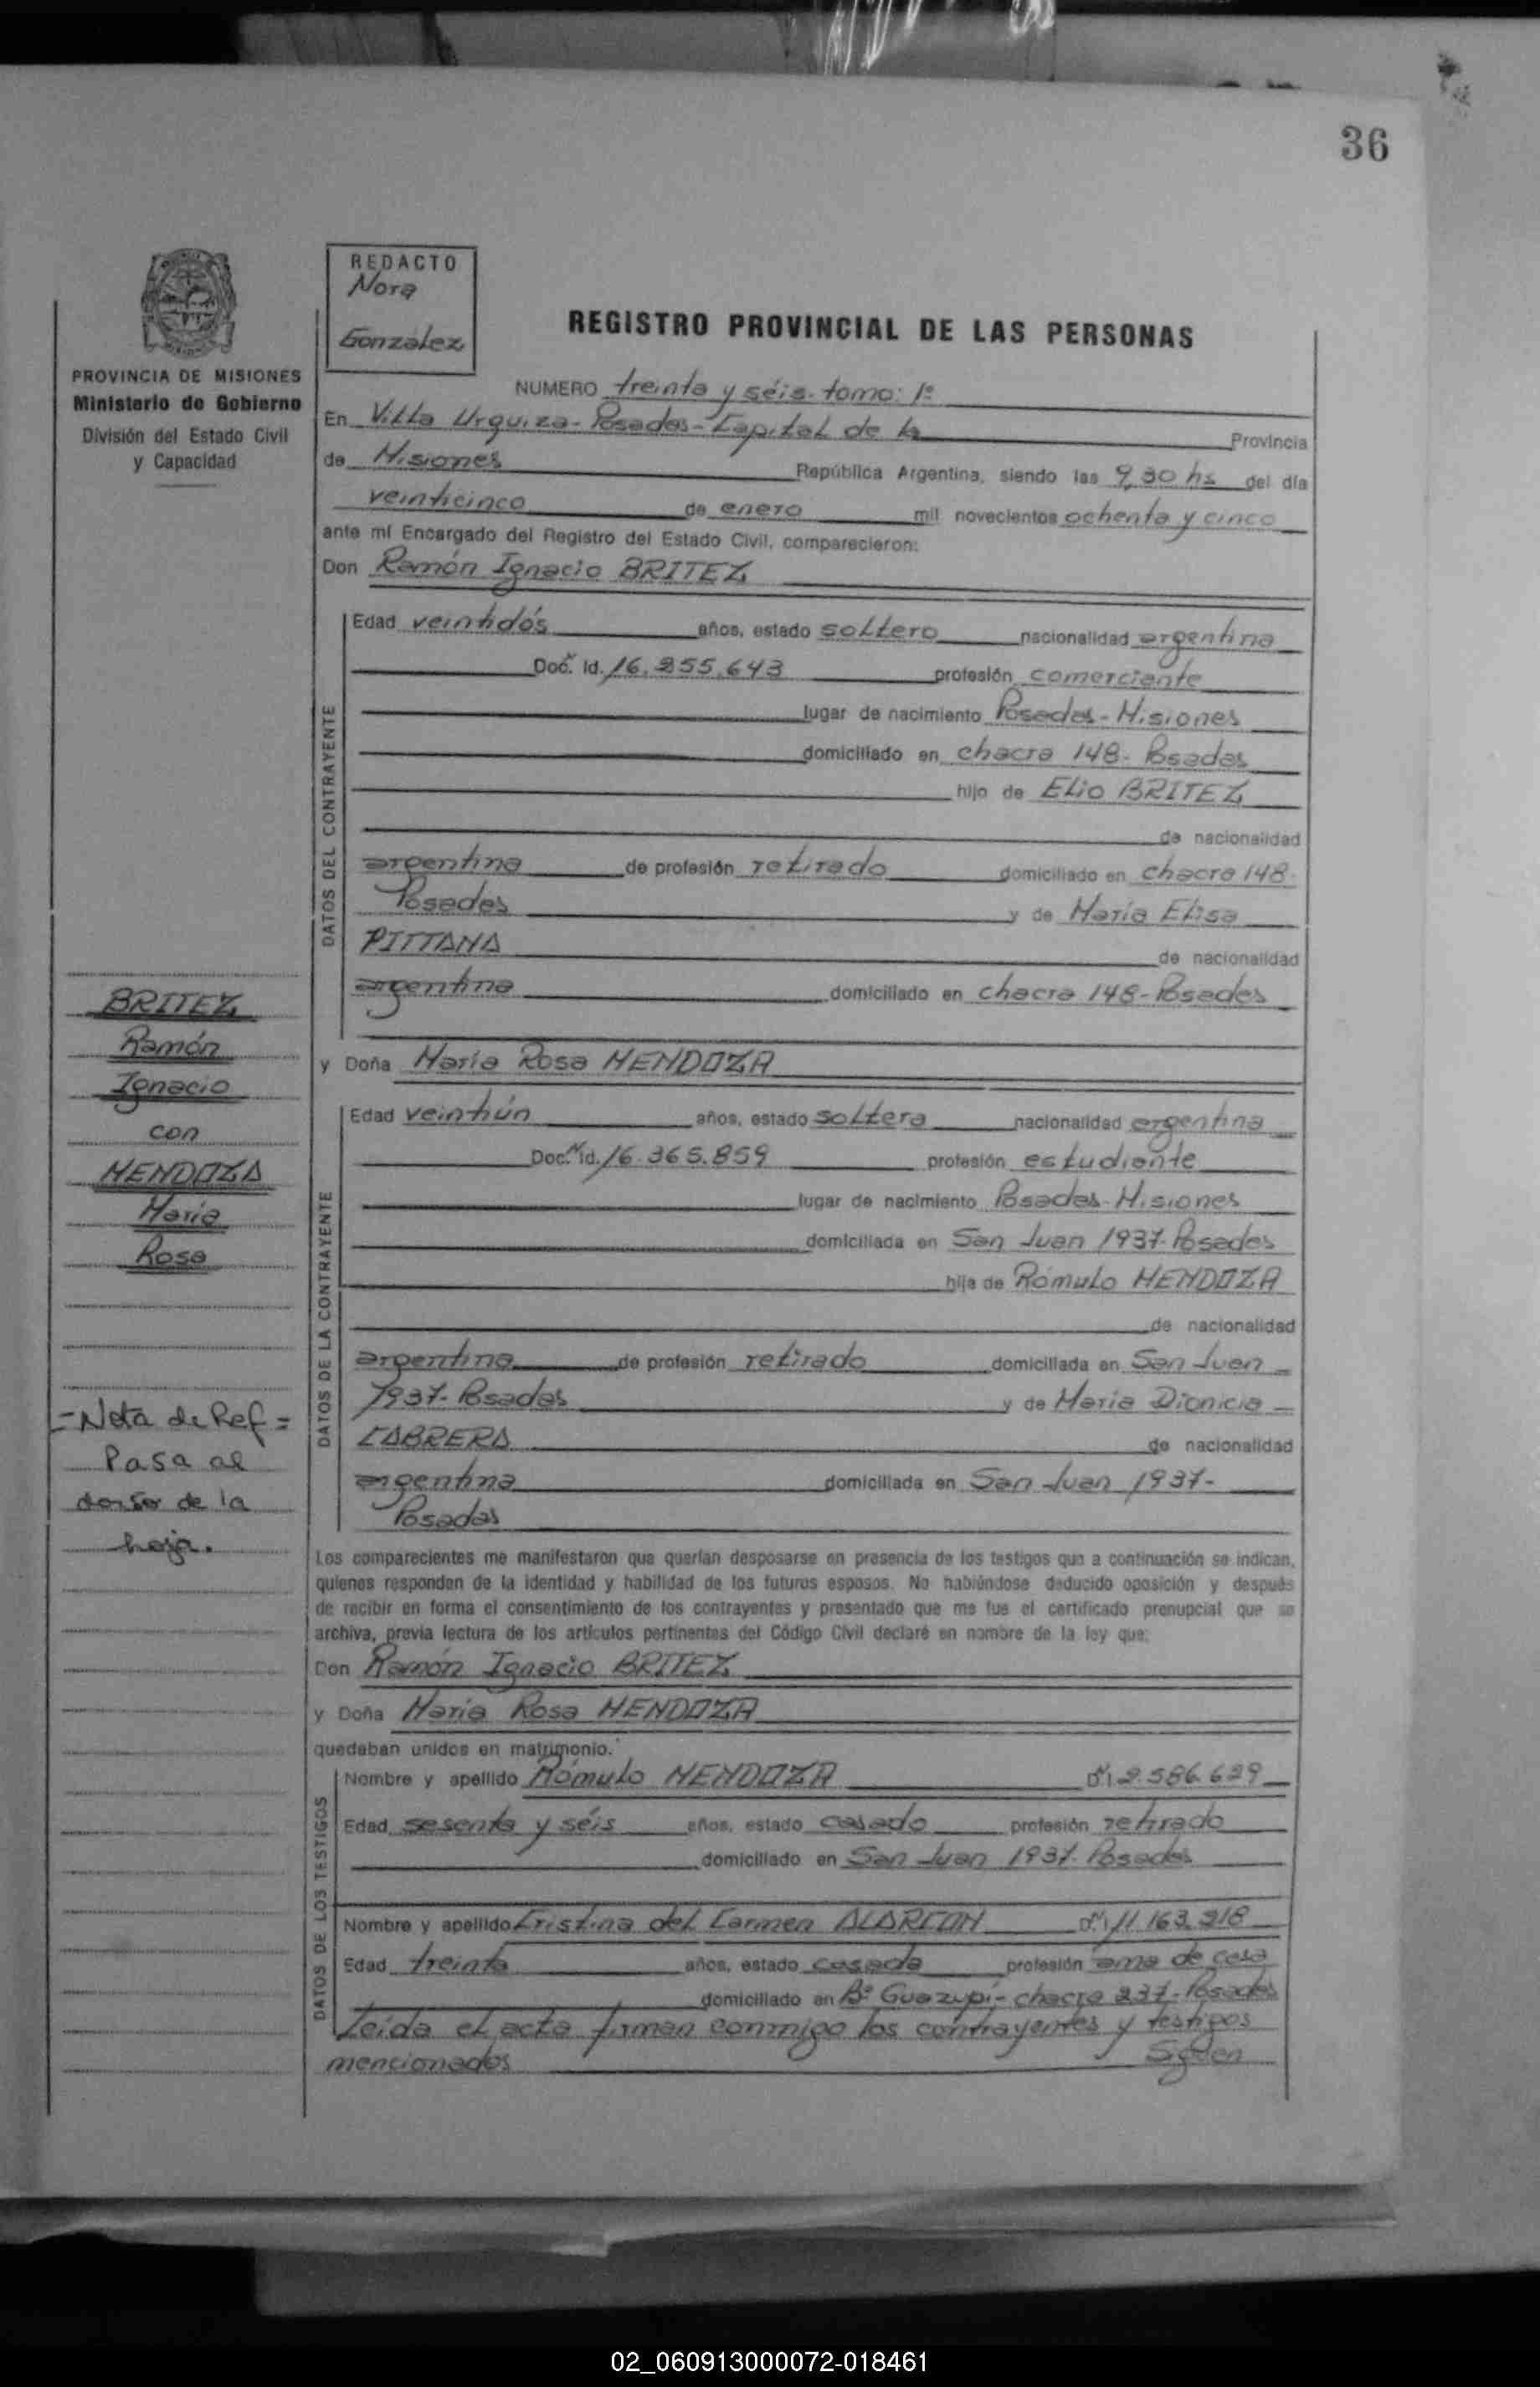 36
REDACTO
Nora
Gonzalez
REGISTRO PROVINCIAL DE LAS PERSONAS
PROVINCIA DE MISIONES
Ministerio de Gobierno
División del Estado Civil
y Capacidad
NUMERO treinta y séis. tomo: 1º
En Villa Urquiza - Posadas - Capital de la Provincia
de Misiones República Argentina, siendo las 9,30 hs del día
veinticinco de enero mil novecientos ochenta y cinco
ante mí Encargado del Registro del Estado Civil, comparecieron:
Don Ramón Ignacio BRITEZ
DATOS DEL CONTRAYENTE
Edad veintidós años, estado soltero nacionalidad argentina
Doc. Id. 16.255.643 profesión comerciante
lugar de nacimiento Posadas - Misiones
domiciliado en chacra 148 - Posadas
hijo de Elio BRITEZ
de nacionalidad
argentina de profesión retirado domiciliado en chacra 148-
Posadas y de María Elisa
PITTANA de nacionalidad
argentina domiciliado en chacra 148 - Posadas
y Doña María Rosa MENDOZA
DATOS DE LA CONTRAYENTE
Edad veintiún años, estado soltera nacionalidad argentina
Doc. Id. 16.365.859 profesión estudiante
lugar de nacimiento Posadas - Misiones
domiciliada en San Juan 1937 - Posadas
hija de Rómulo MENDOZA
de nacionalidad
argentina de profesión retirado domiciliada en San Juan
1937 - Posadas y de María Dionicia
CABRERA de nacionalidad
argentina domiciliada en San Juan 1937 -
Posadas
BRITEZ
Ramón
Ignacio
con
MENDOZA
María
Rosa
= Nota de Ref =
Pasa al
dorso de la
hoja.
Los comparecientes me manifestaron que querían desposarse en presencia de los testigos que a continuación se indican,
quienes responden de la identidad y habilidad de los futuros esposos. No habiéndose deducido oposición y después
de recibir en forma el consentimiento de los contrayentes y presentado que me fue el certificado prenupcial que se
archiva, previa lectura de los artículos pertinentes del Código Civil declaré en nombre de la ley que:
Don Ramón Ignacio BRITEZ
y Doña María Rosa MENDOZA
quedaban unidos en matrimonio.
DATOS DE LOS TESTIGOS
Nombre y apellido Rómulo MENDOZA 2.586.629
Edad sesenta y séis años, estado casado profesión retirado
domiciliado en San Juan 1937 - Posadas
Nombre y apellido Cristina del Carmen ALARCON 11.163.218
Edad treinta años, estado casada profesión ama de casa
domiciliado en Bº Guazupi - chacra 237 - Posadas
Leida el acta firman conmigo los contrayentes y testigos
mencionados
02_060913000072-018461